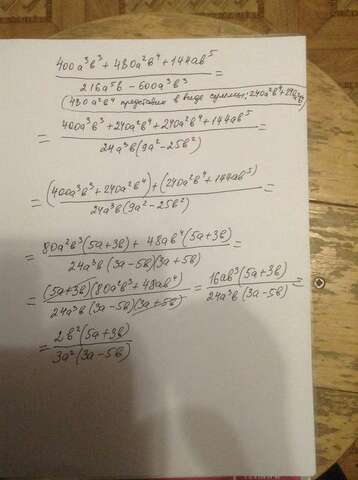 400a³b³ + 480a²b⁴ + 144ab⁵
216a⁵b - 600a³b³ =
(480a²b⁴ представим в виде суммы: 240a²b⁴ + 240a²b⁴)
= 400a³b³ + 240a²b⁴ + 240a²b⁴ + 144ab⁵ =
24a³b(9a² - 25b²)
= (400a³b³ + 240a²b⁴) + (240a²b⁴ + 144ab⁵) =
24a³b(9a² - 25b²)
= 80a²b³(5a+3b) + 48ab⁴(5a+3b) =
24a³b(3a-5b)(3a+5b)
= (5a+3b)(80a²b³ + 48ab⁴) = 16ab³(5a+3b) =
24a³b(3a-5b)(3a+5b) 24a³b(3a-5b)
= 2b²(5a+3b)
3a²(3a-5b)